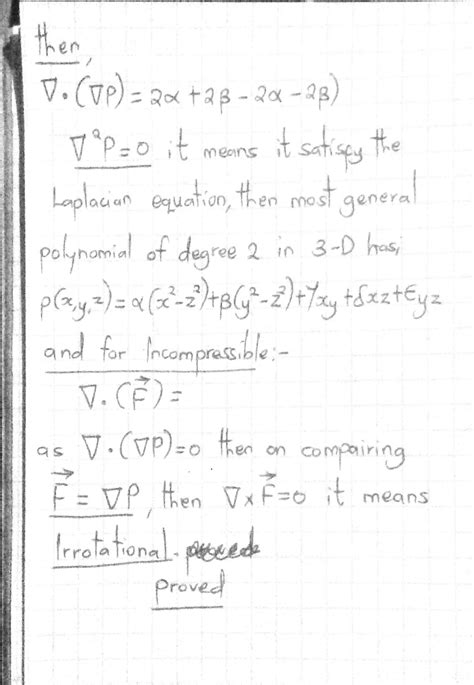 then,
∇·(∇P) = 2α + 2β - 2α - 2β)
∇²P = 0 it means it satisfy the
Laplacian equation, then most general
polynomial of degree 2 in 3-D has;
P(x,y,z) = α(x²-z²)+β(y²-z²)+γxy+δxz+Єyz
and for Incompressible:-
∇·(F⃗) =
as ∇·(∇P)=0 then on compairing
F⃗ = ∇P, then ∇×F⃗=0 it means
Irrotational.
proved